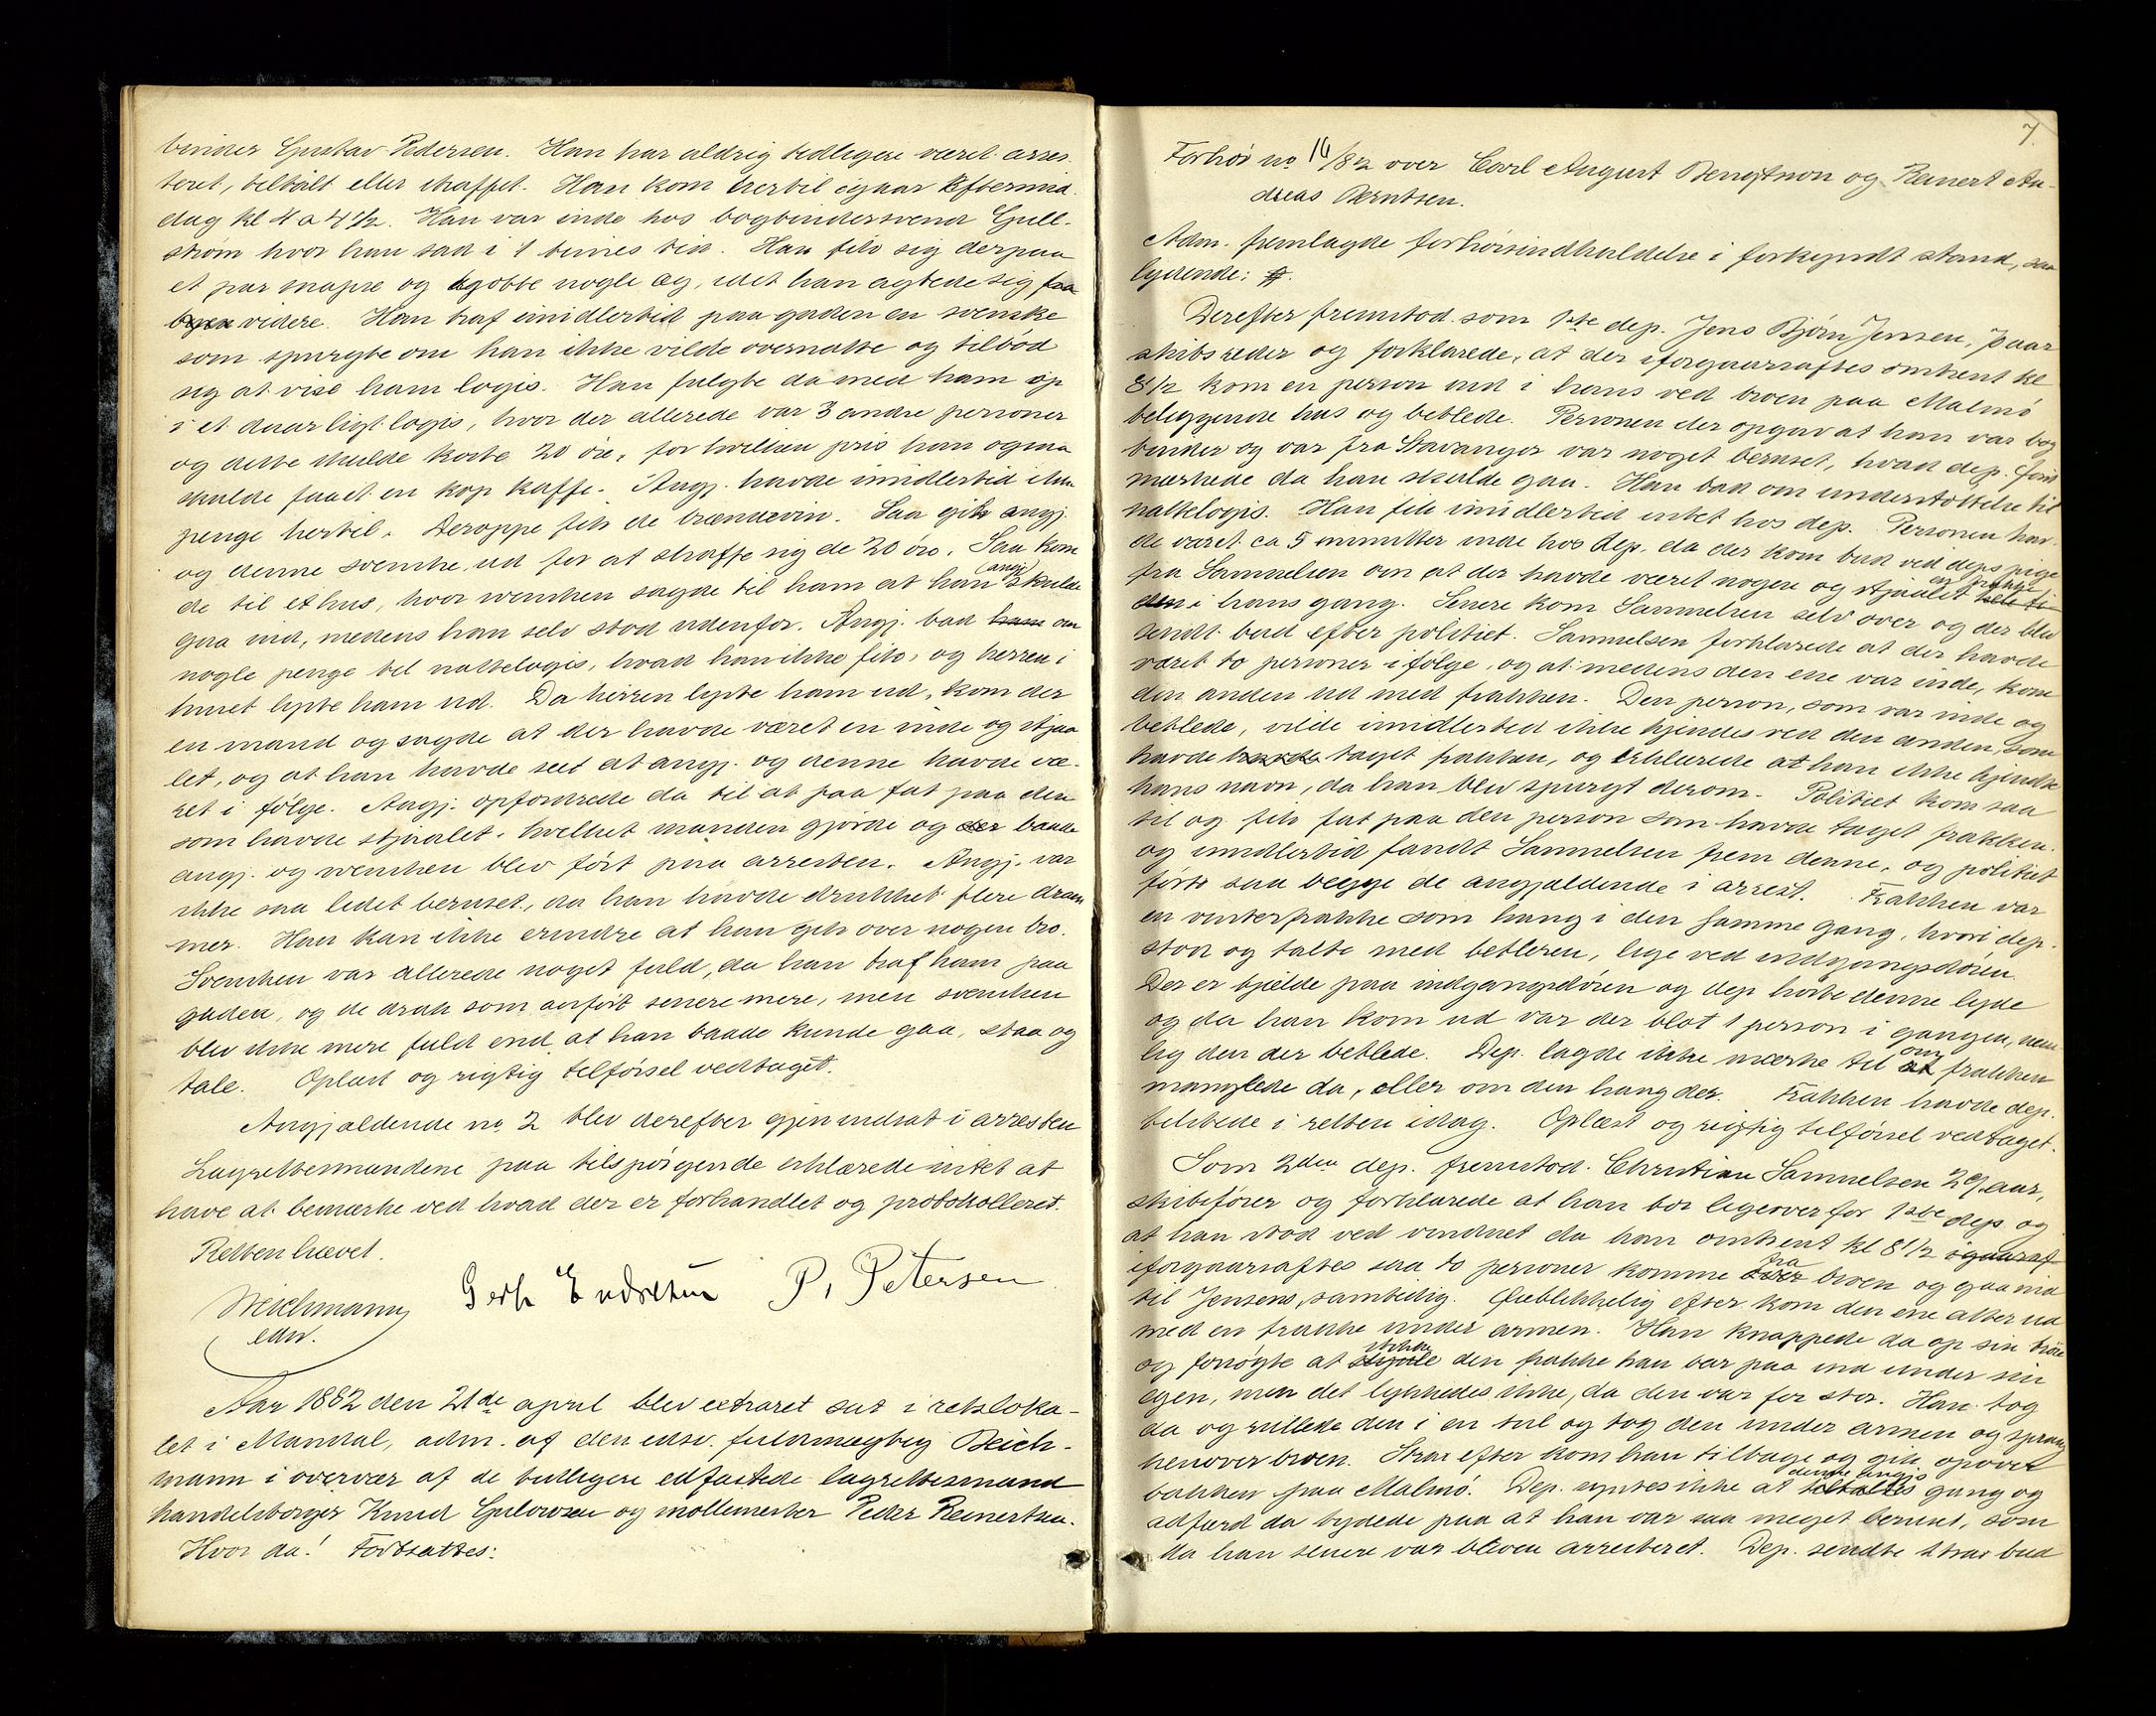 binder Gustav Pedersen. Han har aldrig tidligere været arres-
teret, tiltalt eller straffet. Han kom hertil igaar Eftermid-
dag kl 4 a 4 1/2. Han var inde hos bogbindersvend Gull-
strøm hvor han sad i 1 times tid. Han fik sig derpaa
et par snapse og kjøbte nogle æg, idet han agtede sig fra
byen videre. Han traf imidlertid paa gaden en svenske
som spurgte om han ikke vilde overnatte og tilbød
sig at vise ham logis. Han fulgte da med ham op
i et daarligt logis, hvor der allerede var 3 andre personer
og dette skulde koste 20 øre, for hvilken pris han ogsaa
skulde faaet en kop kaffe. Angj. havde imidlertid ikke
penge hertil. Deroppe fik de brændevin. Saa gik angj.
og denne svenske ud for at skaffe sig de 20 øre. Saa kom
de til et hus, hvor svensken sagde til ham at han (angj) skulde
gaa ind, medens han selv stod udenfor. Angj. bad ham om
nogle penge til nattelogis, hvad han ikke fik, og herren i
huset lyste ham ud. Da herren lyste ham ud, kom der
en mand og sagde at der havde været en inde og stjaa-
let, og at han havde seet at angj. og denne havde væ-
ret i følge. Angj. opfordrede da til at faa fat paa den
som havde stjaalet, hvilket manden gjorde og der baade
angj. og svensken blev ført paa arresten. Angj. var
ikke saa lidet beruset, da han havde drukket flere dram-
mer. Han kan ikke erindre at han gik over nogen bro.
Svensken var allerede noget fuld, da han traf ham paa
gaden, og de drak som anført senere mere, men svensken
blev ikke mere fuld end at han baade kunde gaa, staa og
tale. Oplæst og rigtig tilførsel vedtaget.
Angjældende no 2 blev derefter gjenindsat i arresten
Lagrettesmændene paa tilspørgende erklærede intet at
have at bemærke ved hvad der er forhandlet og protokolleret.
Retten hævet.
Beichmann
edsv.
Gerh Endresen P. Petersen
Aar 1882 den 21de april blev extraret sat i retsloka-
let i Mandal, adm. af den edsv. fuldmægtig Beich-
mann i overvær af de tidligere edfæstede lagrettesmænd
handelsborger Knud Gulowsen og møllemester Peder Reinertsen.
Hvor da! Fortsattes:
7.
Forhør no 16/82 over Carl August Bengtson og Reinert An-
dreas Berntsen.
Adm. fremlagde forhørsindkaldelse i forkyndt stand, saa
lydende:
Derefter fremstod som 1ste dep. Jens Bjørn Jensen, aar
skibsreder og forklarede, at der iforgaarsaftes omtrent kl
8 1/2 kom en person ind i hans ved broen paa Malmø
beliggende hus og betlede. Personen der opgav at han var bog-
binder og var fra Stavanger var noget beruset, hvad dep. først
mærkede da han skulde gaa. Han bad om understøttelse til
nattelogis. Han fik imidlertid intet hos dep. Personen hav-
de været ca 5 minutter inde hos dep. da der kom bud ved deps pige
fra Samuelsen om at der havde været nogen og stjaalet en frakke
i hans gang. Senere kom Samuelsen selv over og der blev
sendt bud efter politiet. Samuelsen forklarede at der havde
været to personer i følge, og at medens den ene var inde, kom
den anden ud med frakken. Den person, som var inde og
betlede, vilde imidlertid ikke kjendes ved den anden, som
havde havde taget frakken, og erklærede at han ikke kjendte
hans navn, da han blev spurgt derom. Politiet kom saa
til og fik fat paa den person som havde taget frakken.
og imidlertid fandt Samuelsen frem denne, og politiet
førte saa begge de angjældende i arrest. Frakken var
en vinterfrakke som hang i den samme gang, hvori dep.
stod og talte med betleren, lige ved indgangsdøren.
Der er bjelde paa indgangsdøren og dep hørte denne lyde
og da han kom ud var der blot 1 person i gangen, nem-
lig den der betlede. Dep. lagde ikke mærke til om frakken
manglede da, eller om den hang der. Frakken havde dep.
tilstede i retten idag. Oplæst og rigtig tilførsel vedtaget.
Som 2den dep. fremstod Christian Samuelsen 29 aar,
skibsfører og forklarede at han bor ligeoverfor 1ste dep og
at han stod ved vinduet da han omtrent kl 8 1/2 igaaraf
iforgaarsaftes saa to personer komme fra broen og gaa ind
til Jensens, samtidig. Øieblikkelig efter kom den ene atter ud
med en frakke under armen. Han knappede da op sin trøie
og forsøgte at stikke den frakke han bar paa ind under sin
egen, men det lykkedes ikke, da den var for stor. Han tog
da og rullede den i en tul og tog den under armen og sprang
henover broen. Strax efter kom han tilbage og gik opover
bakken paa Malmø. Dep. syntes ikke at denne angjs gang og
adfærd da tydede paa at han var saa meget beruset, som
da han senere var bleven arresteret. Dep. sendte strax bud